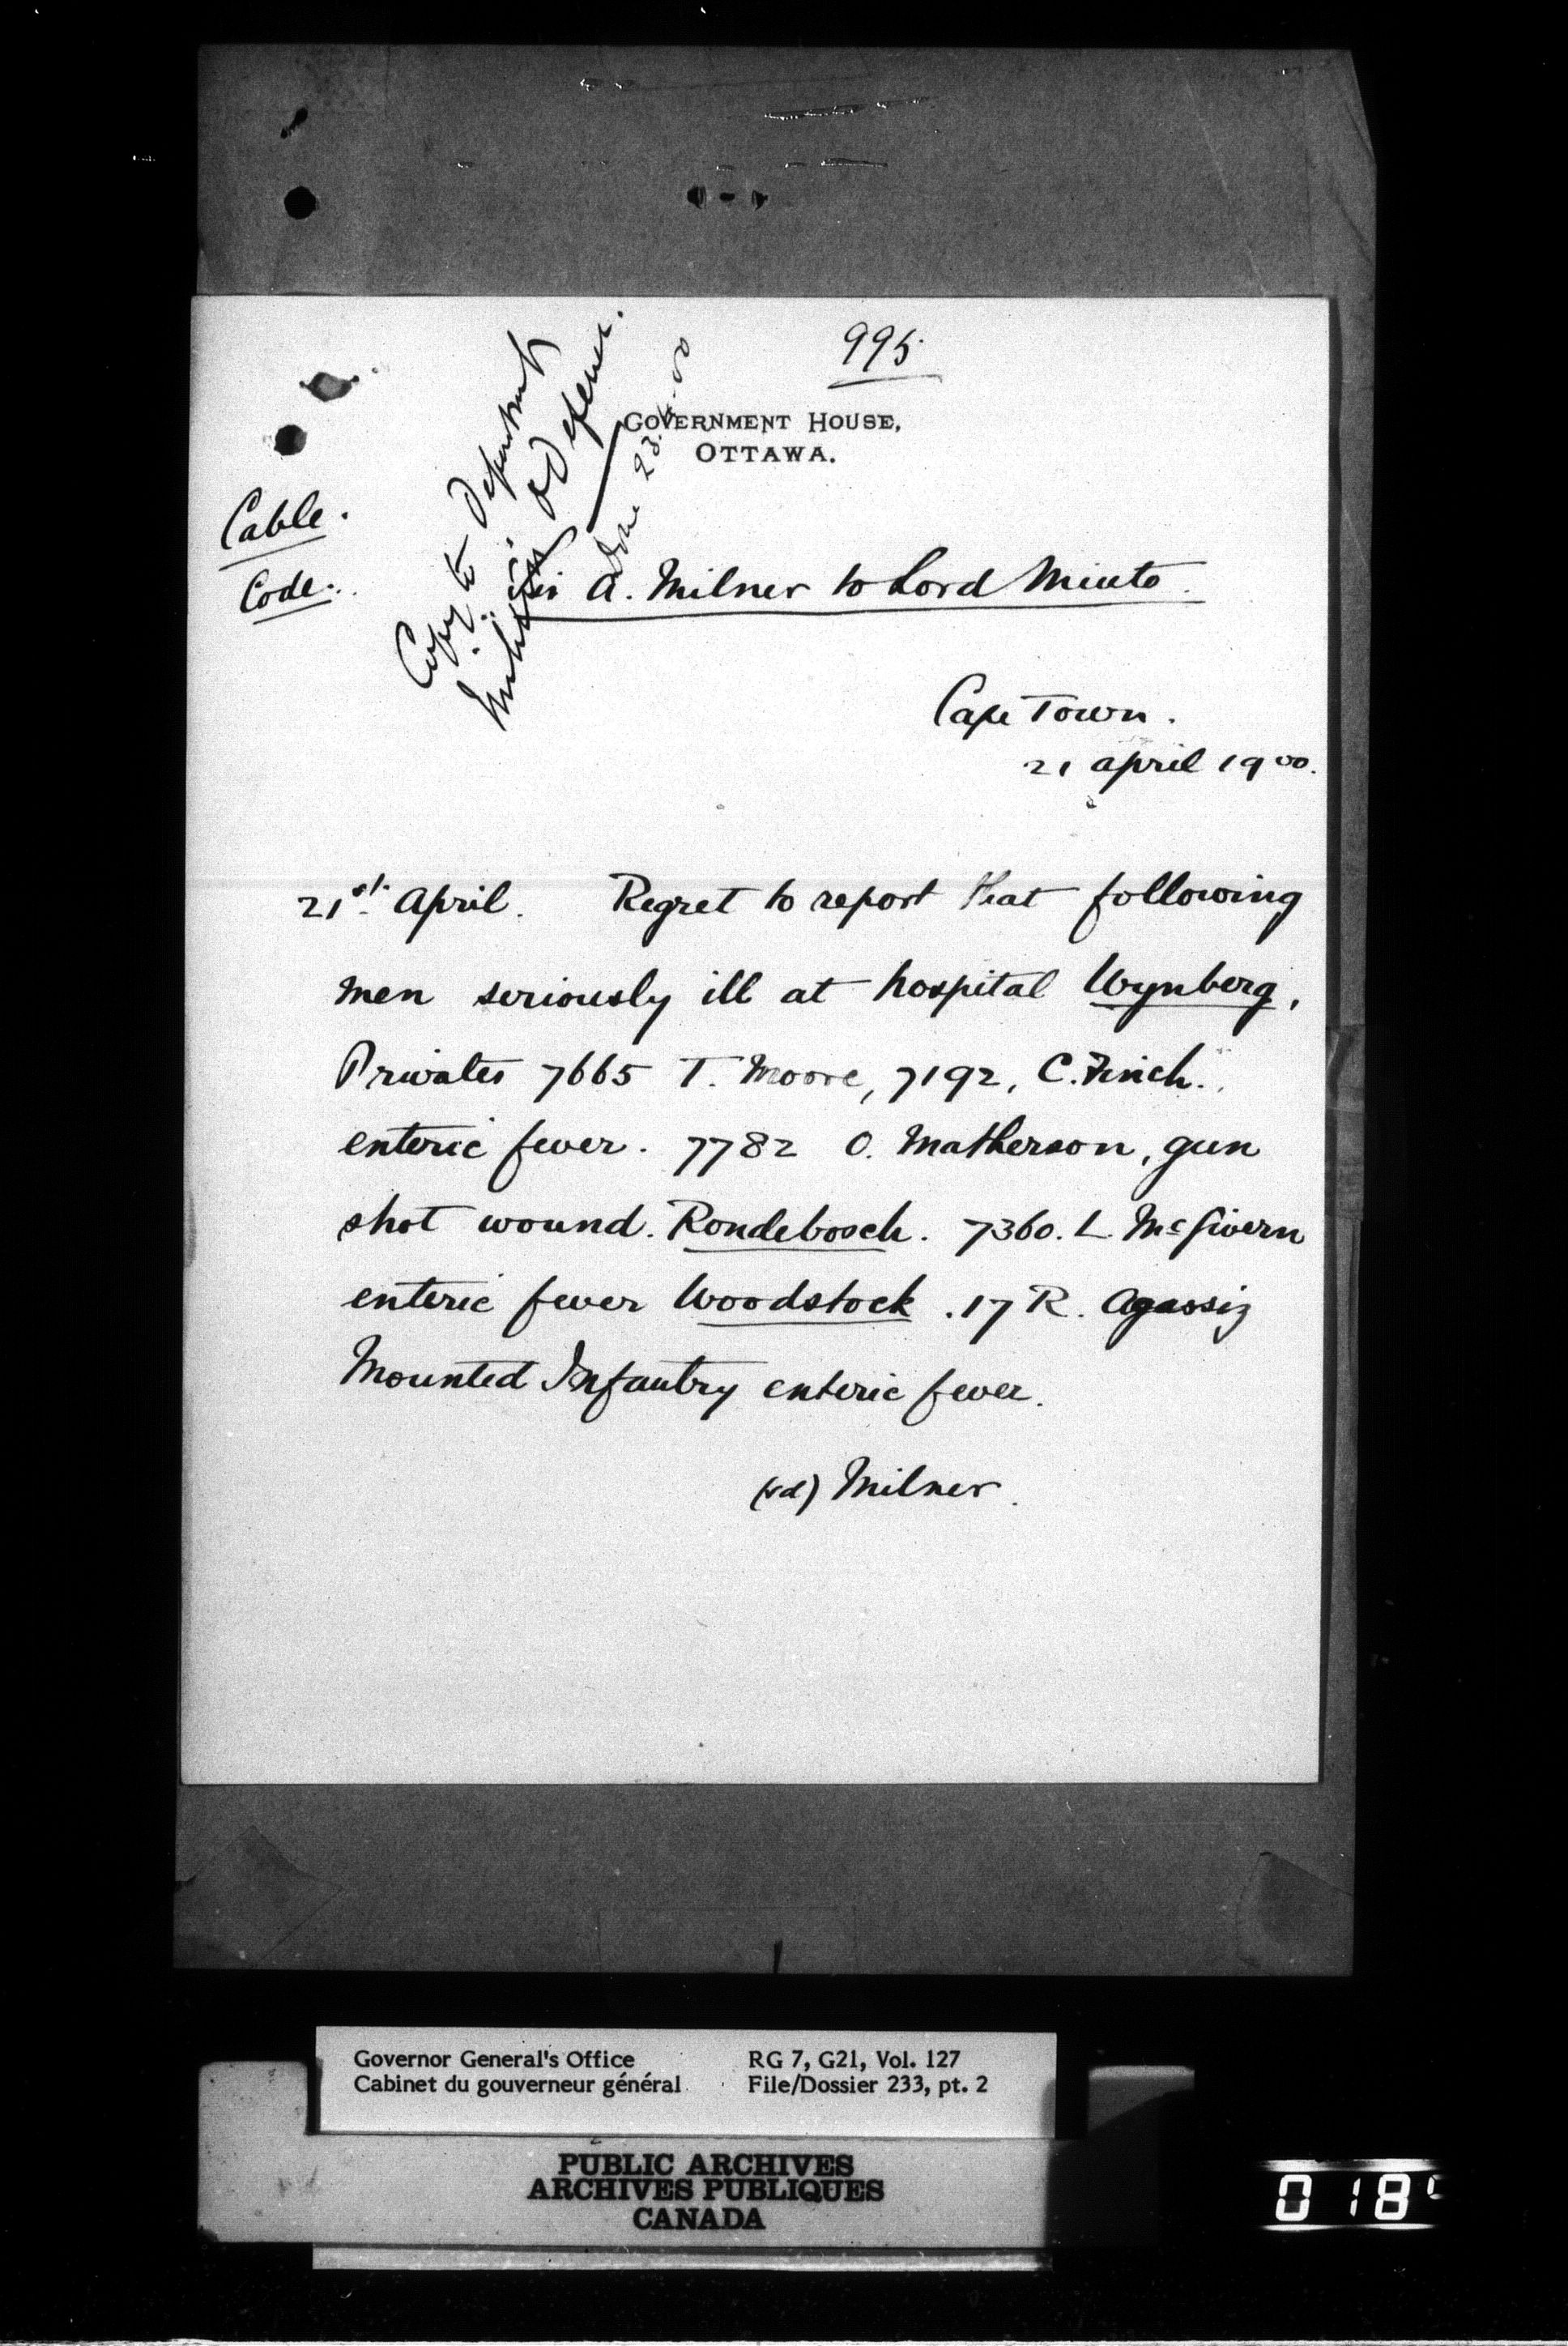 995
GOVERNMENT HOUSE,
OTTAWA.
Copy to Department
Militia & Defence.
Done 23.4.00
Cable.
Code.
Sir A. Milner to Lord Minto.
Cape Town.
21 April 1900.
21st. April. Regret to report that following
men seriously ill at hospital Wynberg,
Privates 7665 T. Moore, 7192, C. Finch.
enteric fever. 7782 O. Matherson, gun
shot wound. Rondebosch. 7360. L. McGivern
enteric fever Woodstock. 17 R. Agassiz
Mounted Infantry enteric fever.
(sd) Milner.
Governor General's Office RG 7, G21, Vol. 127
Cabinet du gouverneur général File/Dossier 233, pt. 2
PUBLIC ARCHIVES
ARCHIVES PUBLIQUES
CANADA
018